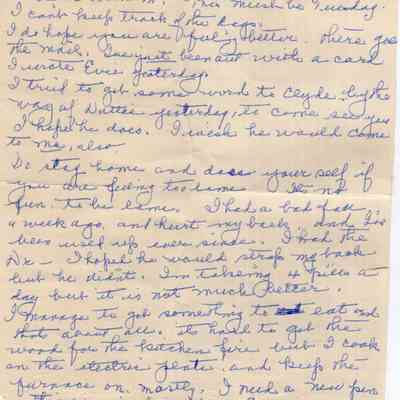 this must be Tuesday.
I cant keep track of the days.
I do hope you are feeling better. There goes
the Mail. Ive just been out with a card
I wrote Evie yesterday.
I tried to get some word to Clyde, by the
way of Duttie yesterday, to come see you
I hope he does. I wish he would come
to me, also
Do stay home and your self if
you are feeling too lame It not
fun to be lame. I had a bad fall
a week ago, and hurt my back and I've
been used up ever since. I had the
Dr - I hoped he would strap my back
but he didn't. Im takeing 4 pills a
day but it is not much better.
I manage to get something to eat and
thats about all. its hard to get the
wood for the kitchen fire but I cook
on the electric plate. and keep the
furnace on, mostly. I need a new pen